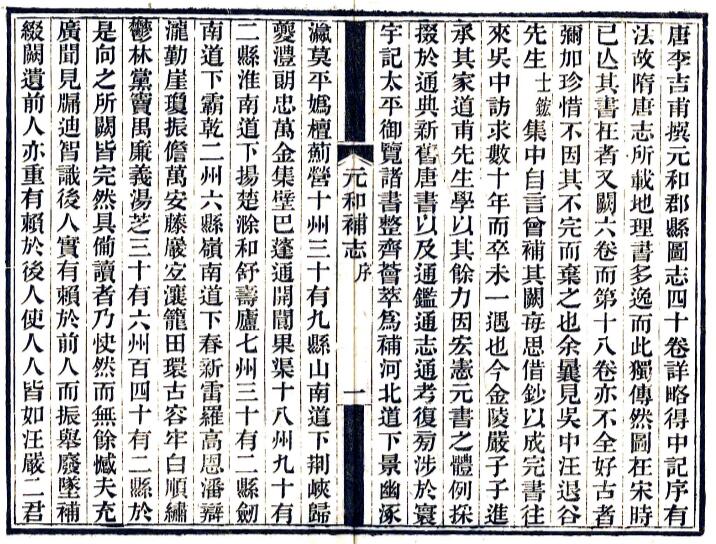 唐李吉甫撰元和郡縣圖志四十卷詳略得中記序有
法故隋唐志所載地理書多逸而此獨傳然圖在宋時
已亾其書在者又闕六卷而第十八卷亦不全好古者
彌加珍惜不因其不完而棄之也余曩見吳中汪退谷
先生士鋐集中自言曾補其闕每思借鈔以成完書往
來吳中訪求數十年而卒未一遇也今金陵嚴子子進
承其家道甫先生學以其餘力因宏憲元書之體例採
掇於通典新舊唐書以及通鑑通志通考復旁涉於寰
宇記太平御覽諸書整齊薈萃為補河北道下景幽涿
元和補志 序 一
瀛莫平媯檀薊營十州三十有九縣山南道下荆峽歸
夔澧朗忠萬金集壁巴蓬通開閬果渠十八州九十有
二縣淮南道下揚楚滁和舒壽廬七州三十有二縣劒
南道下霸乾二州六縣嶺南道下春新雷羅高恩潘辯
瀧勤崖瓊振儋萬安藤巖宜瀼籠田環古容牢白順繡
鬱林黨竇禺廉義湯芝三十有六州百四十有二縣於
是向之所闕皆完然具備讀者乃快然而無餘憾夫充
廣聞見牖迪智識後人實有賴於前人而振舉廢墜補
綴闕遺前人亦重有賴於後人使人人皆如汪嚴二君